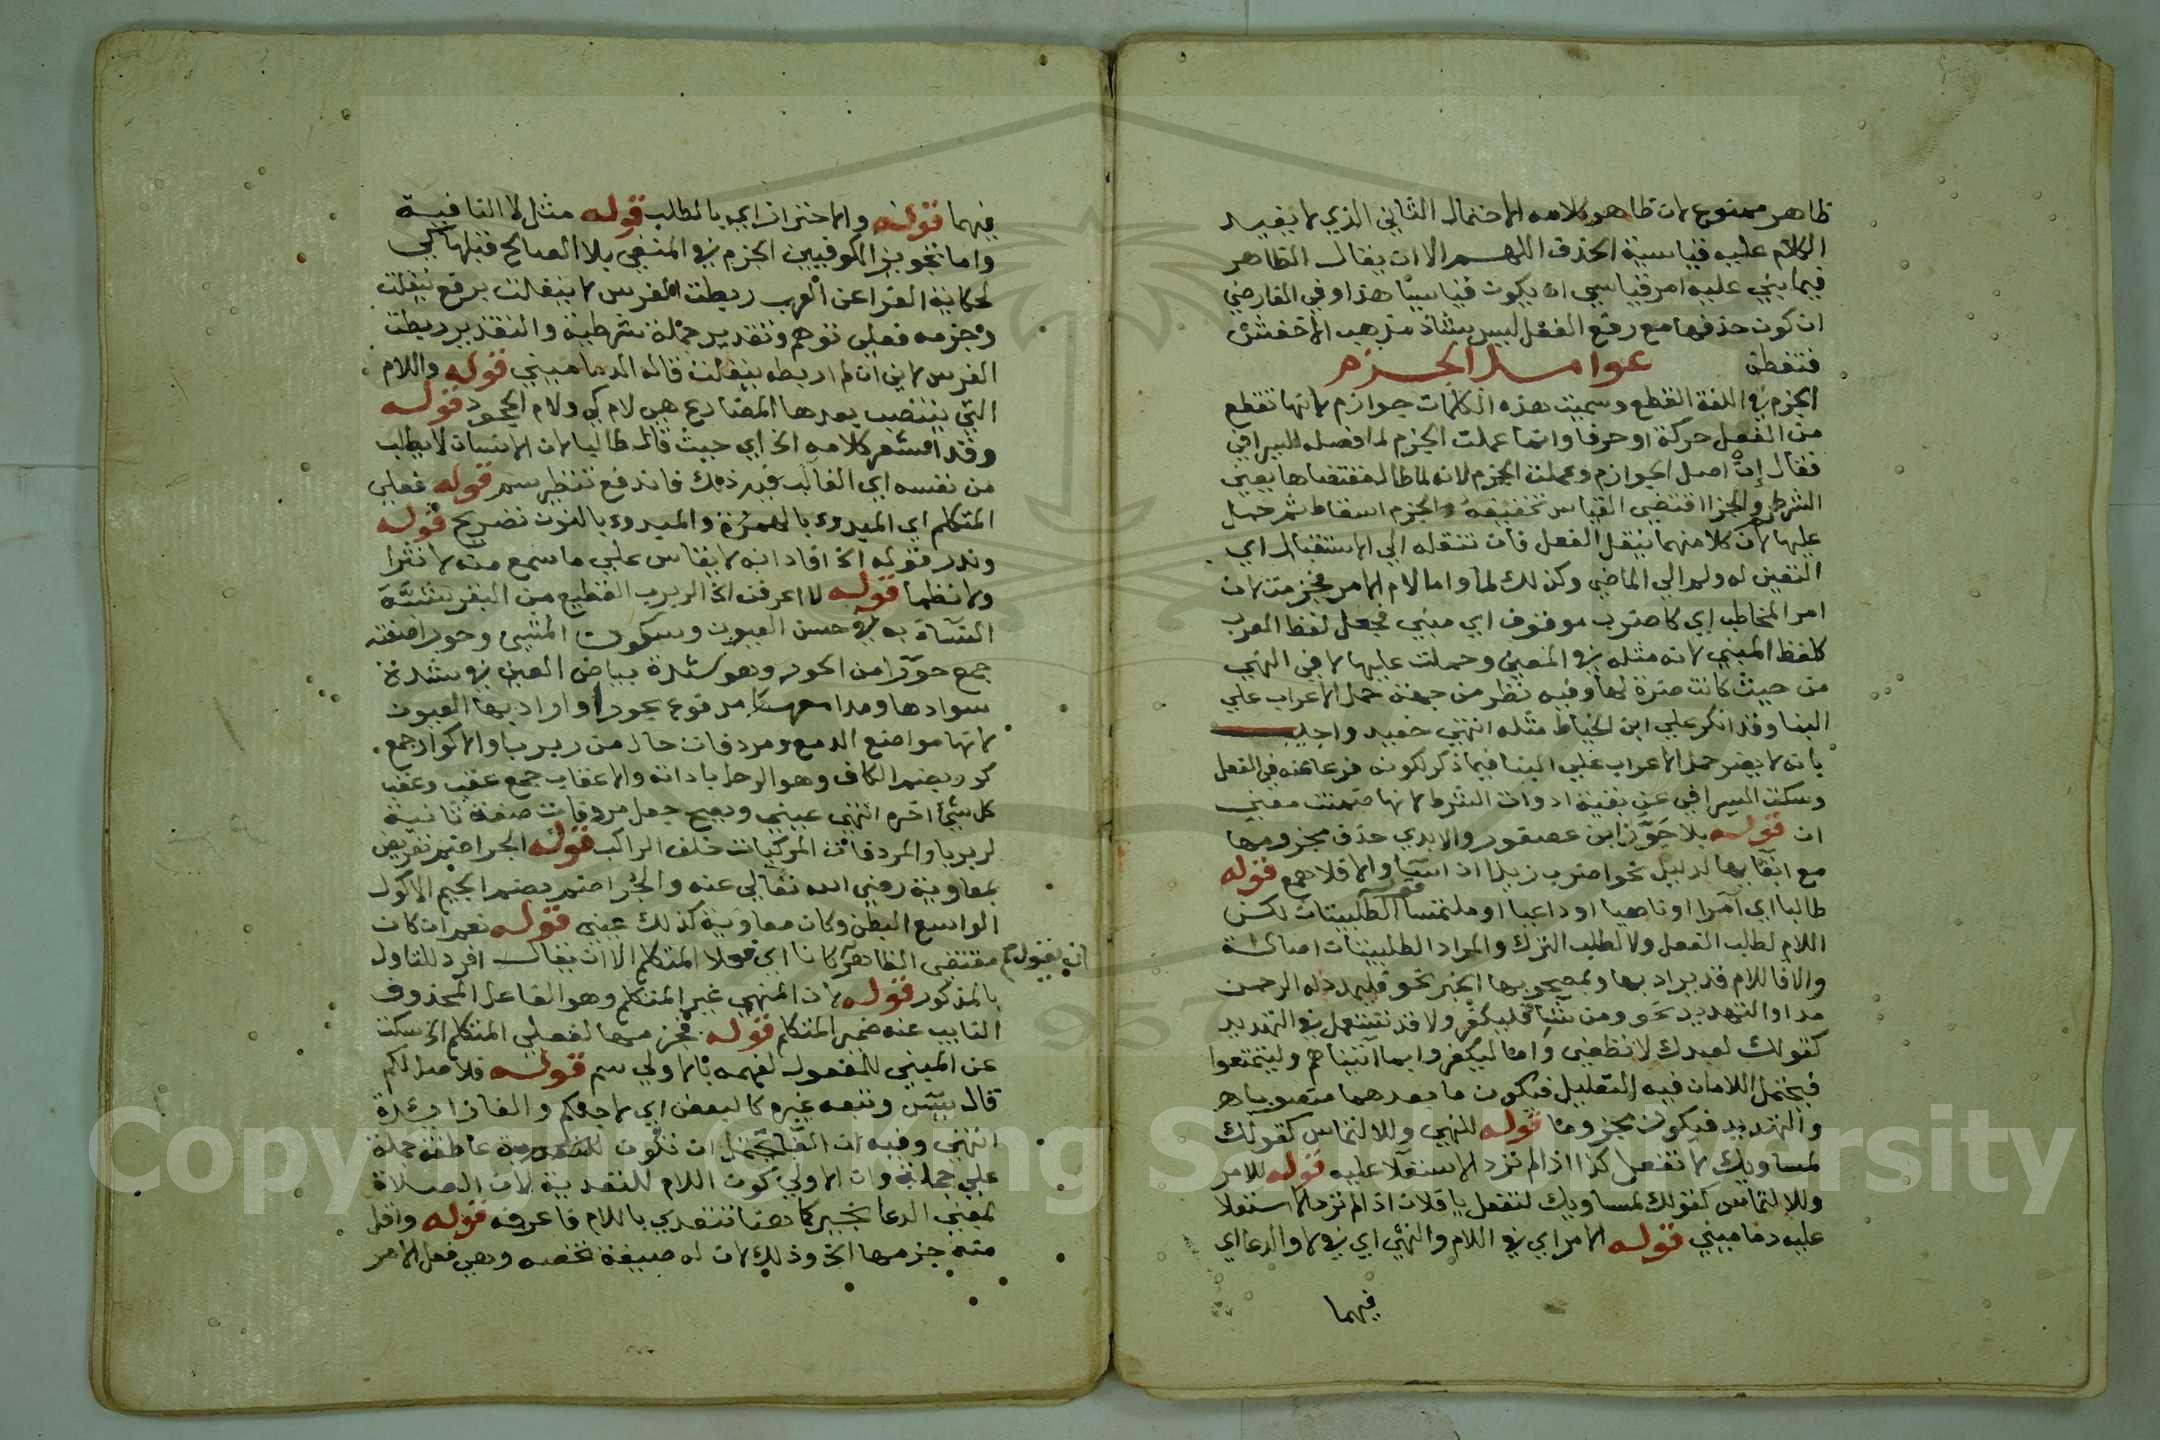 ظاهر ممنوع لان ظاهر كلامه الاحتمال الثاني الذي لا يفيد
الكلام عليه قياسية الحذف اللهم الا ان يقال الظاهر
فيما يبني عليه امر قياسي ان يكون قياسيا هذا وفي الفارضي
ان كون حذفها مع رفع الفعل ليس بشاذ مذهب الاخفش
فتفطن عوامل الجزم
الجزم في اللغة القطع وسميت هذه الكلمات جوازم لانها تقطع
من الفعل حركة او حرفا وانما عملت الجزم لما فصله السيرافي
فقال إنْ اصل الجوازم وعملت الجزم لانه لما طال مقتضاها يعني
الشرط والجزا اقتضى القياس تخفيفه والجزم اسقاط ثم حمل
عليها لم لان كلا منهما ينقل الفعل فان تنقله الى الاستقبال اي
التعين له ولم الى الماضي وكذلك لما واما لام الامر فجزمت لان
امر المخاطب اي كاضرب موقوف اي مبني فجعل لفظ المعرب
كلفظ المبني لانه مثله في المعنى وحملت عليها لا في النهي
من حيث كانت ضرة لها وفيه نظر من جهة حمل الاعراب على
البنا وقد انكر على ابن الخياط مثله انتهى حفيد واجيب
بانه لا يضر حمل الاعراب على البنا فيما ذكر لكونه فرعا عنه في الفعل
وسكت السيرافي عن بقية ادوات الشرط لانها ضمنت معنى
ان قوله بلا جَوَّز ابن عصفور والابدي حذف مجزومها
مع ابقايها لدليل نحو اضرب زيدا ان اسآ والا فلا همع قوله
طالبا اي آمرا او ناهيا او داعيا او ملتمسا الطلبيتان لكن
اللام لطلب الفعل ولا لطلب الترك والمراد الطلبيتان اصالة
والا فاللام قد يراد بها وبمصحوبها الخبر نحو فليمدد له الرحمن
مدا والتهديد نحو ومن شآ فليكفر ولا قد تستعمل في التهديد
كقولك لعبدك لا تطعني واما ليكفروا بما آتيناهم وليتمتعوا
فيحتمل اللامان فيه التعليل فيكون ما بعدهما منصوبا
والتهديد فيكون مجزوما قوله للنهي وللالتماس كقولك
لمساويك لا تفعل كذا اذا لم ترد الاستعلا عليه قوله للامر
وللالتماس كقولك لمساويك لتفعل يا فلان اذا لم ترد الاستعلا
عليه دماميني قوله الامر اي في اللام والنهي اي في لا والدعا اي
فيهما
فيهما قوله والاحتراز اي بالطلب قوله مثل لا النافية
واما تجويز الكوفيين الجزم في المنفي بلا الصالح قبلها كي
لحكاية الفرا عن العرب ربطت الفرس لا ينفلت برفع ينفلت
وجزمه فعلى توهم وتقدير جملة شرطية والتقدير ربطت
الفرس لاني ان لم اربطه ينفلت قاله الدماميني قوله واللام
التي ينتصب بعدها المضارع هي لام كي ولام الجحود قوله
وقد اشعر كلامه الخ اي حيث قال طالبا لان الانسان لا يطلب
من نفسه اي الغالب فيه ذلك فاندفع تنظير سم قوله فعلي
المتكلم اي المبدوء بالهمزة والمبدوء بالنون تصريح قوله
وندر قوله الخ افاد انه لا يقاس على ما سمع منه لا نثرا
ولا نظما قوله لا اعرفن الخ الربرب القطيع من البقر شبَّه
النسآ به في حسن العيون وسكون المشي وحورا صفته
جمع حورا من الحور وهو شدة بياض العين في شدة
سوادها ومدامعها مرفوع بحورا واراد بها العيون
لانها مواضع الدمع ومردفات حال من ربربا والاكوار جمع
كور بضم الكاف وهو الرحل باداته والاعقاب جمع عقب وعقب
كل شي اخره انتهى عيني ويصح جعل مردفات صفة ثانية
لربربا والمردفات المركبات خلف الراكب قوله الجراضم تعريض
بمعاوية رضي الله تعالى عنه والجراضم بضم الجيم الاكول
الواسع البطن وكان معاوية كذلك عيني قوله نعم ان كان
ان يقول كم مقتضى الظاهر كانا اي فعلا المتكلم الا ان يقال افرد للتاول
بالمذكور قوله لان المنهي غير المتكلم وهو الفاعل المحذوف
النايب عنه ضمير المتكلم قوله فجزمها لفعلي المتكلم الخ سكت
عن المبني للمفعول لفهمه بالاولى سم قوله فلاصل لكم
قال يس وتبعه غيره كالبعض اي لاجلكم والفا زايدة
انتهى وفيه ان الفا يحتمل ان تكون عاطفة جملة
على جملة وان الاولى كون اللام للتعدية لان الصلاة
بمعنى الدعا بخير كما هنا تتعدى باللام فاعرفه قوله واقل
منه جزمها الخ وذلك لان له صيغة تخصه وهي فعل الامر
Copyright © King Saud University